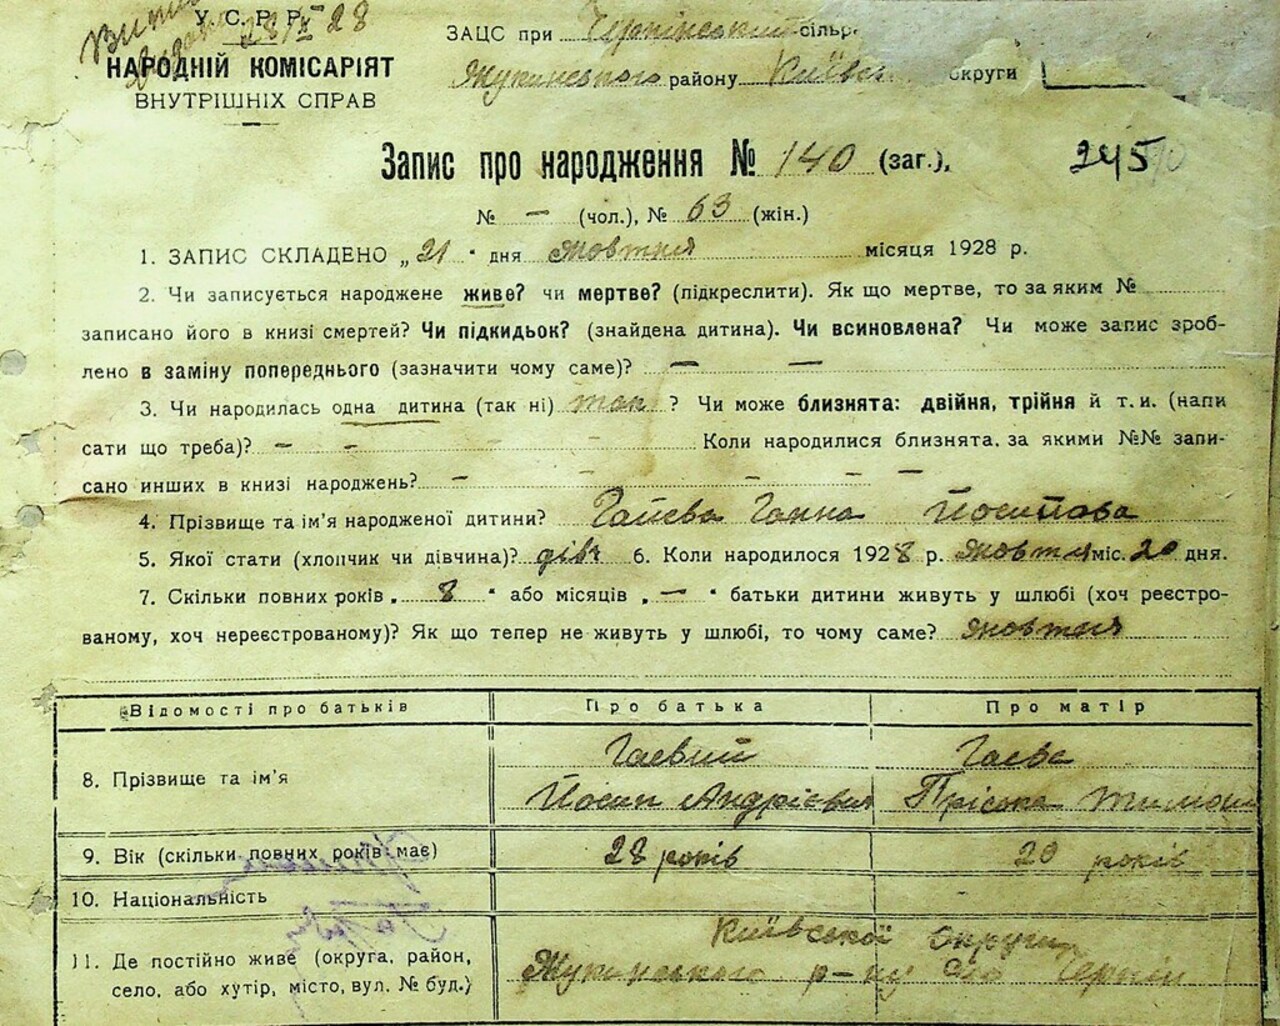 У. С. Р. Р.
28/X 28
НАРОДНІЙ КОМІСАРІЯТ
ВНУТРІШНІХ СПРАВ
ЗАЦС при Чернінський сільр
Жукинського району Київс округи
Запис про народження № 140 (заг.),
245
№ — (чол.), № 63 (жін.)
1. ЗАПИС СКЛАДЕНО „21" дня жовтня місяця 1928 р.
2. Чи записується народжене живе? чи мертве? (підкреслити). Як що мертве, то за яким №
записано його в книзі смертей? Чи підкидьок? (знайдена дитина). Чи всиновлена? Чи може запис зроб-
лено в заміну попереднього (зазначити чому саме)? — —
3. Чи народилась одна дитина (так ні) так ? Чи може близнята: двійня, трійня й т. и. (напи
сати що треба)? - - - - Коли народилися близнята, за якими №№ запи-
сано инших в книзі народжень? - - - -
4. Прізвище та ім'я народженої дитини? Гаєва Ганна Йосипова
5. Якої стати (хлопчик чи дівчина)? дівч 6. Коли народилося 1928 р. жовтня міс. 20 дня.
7. Скільки повних років „ 8 " або місяців „ — " батьки дитини живуть у шлюбі (хоч реєстро-
ваному, хоч нереєстрованому)? Як що тепер не живуть у шлюбі, то чому саме? жовтня
Відомості про батьків Про батька Про матір
8. Прізвище та ім'я Гаєвий Гаєва
Йосип Андрієвич Пріська Тимоші
9. Вік (скільки повних років має) 28 років 20 років
10. Національність
11. Де постійно живе (округа, район, село, або хутір, місто, вул. № буд.) Київської округи
Жукинського р-ну с. Чернін